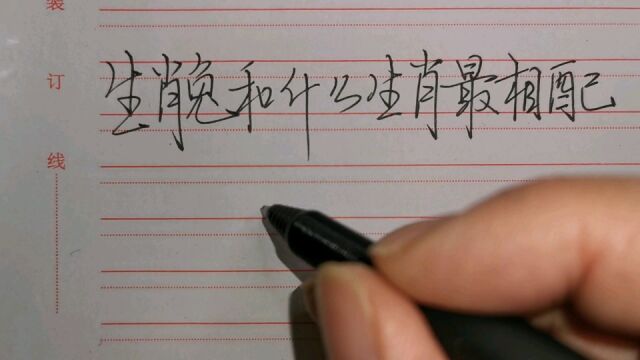 装
订
线
生肖兔和什么生肖最相配